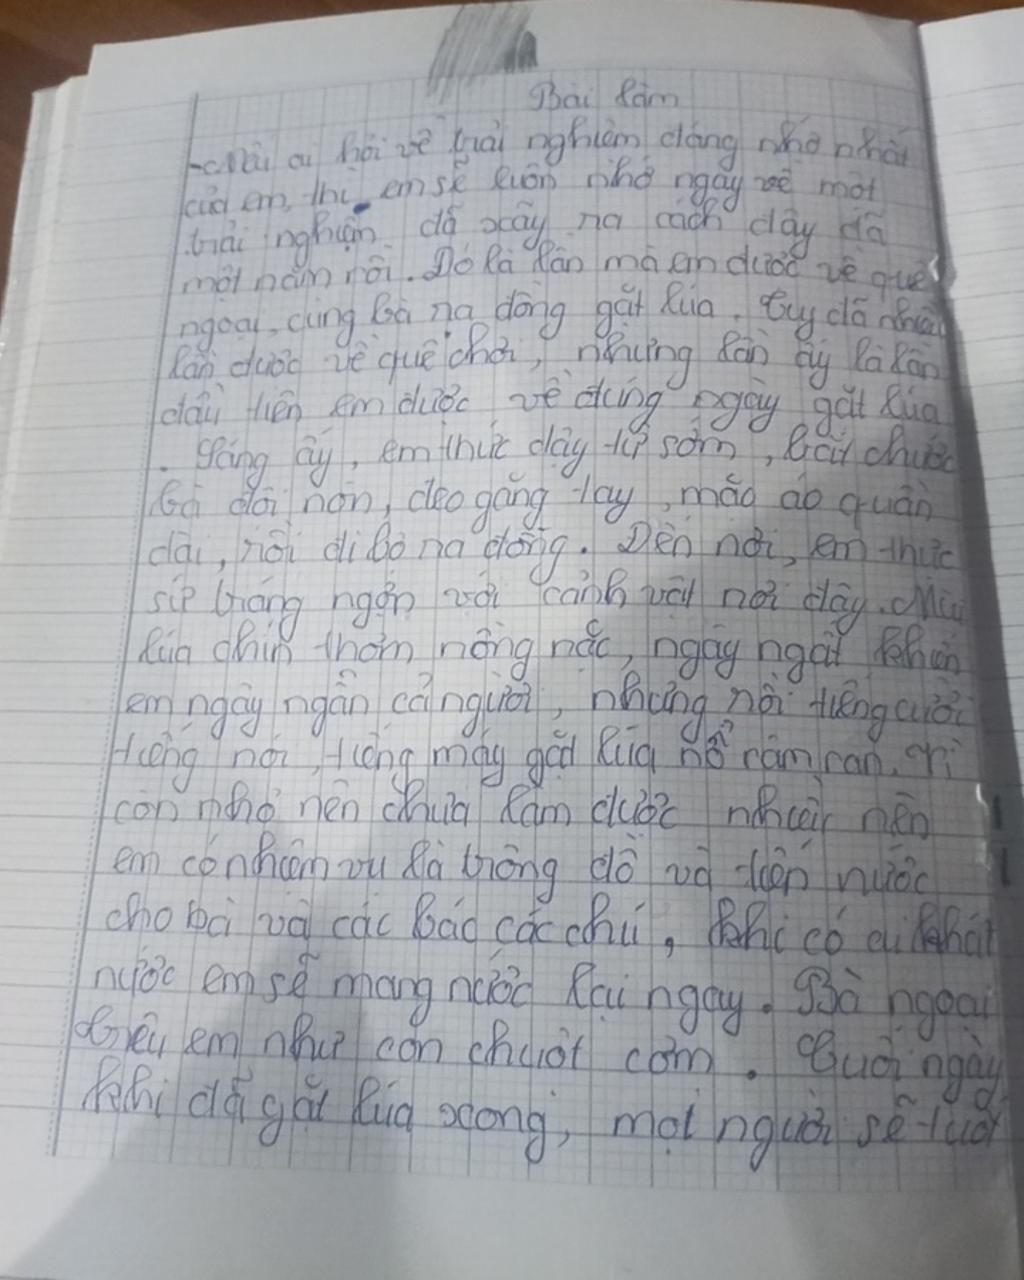 Bài làm
-Nếu ai hỏi về trải nghiệm đáng nhớ nhất
của em, thì em sẽ luôn nhớ ngay về một
trải nghiệm đã xãy na cách đây đã
một năm rồi. Đó là lần mà em được về quê
ngoại, cùng bà na đồng gặt lúa. Tuy đã nhiều
lần được về quê chơi, nhưng lần ấy là lần
đầu tiên em được về đúng ngày gặt lúa
. Sáng ấy, em thức dậy từ sớm, bắt chước
bà đội nón, đeo găng tay, mặc áo quần
dài, rồi đi bộ na đồng. Đến nơi, em thực
sự tráng ngợp với cảnh vật nơi đây. Mùi
lúa chín thơm nồng nặc, ngây ngất khiến
em ngây ngẩn cả người, những nơi tiếng cười
tiếng nói, tiếng máy gặt lúa nổ râm ran. Vì
còn nhỏ nên chưa làm được nhiều nên
em có nhiệm vụ là trông đồ và tiếp nước
cho bà và các bác các chú, khi có ai khát
nước em sẽ mang nước lại ngay. Bà ngoại
trêu em như con chuột cơm. Cuối ngày
khi đã gặt lúa xong, mọi người sẽ tuốt